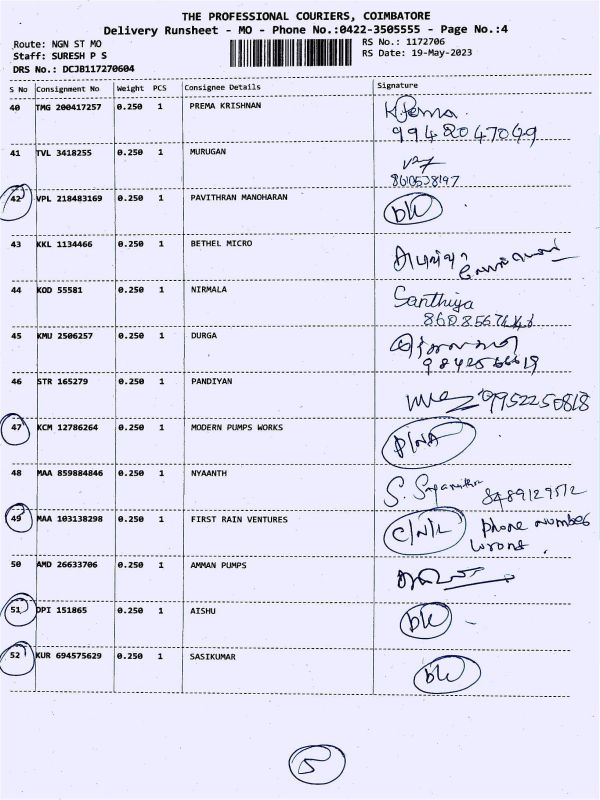 THE PROFESSIONAL COURIERS, COIMBATORE
Delivery Runsheet - MO - Phone No.:0422-3505555 - Page No.:4
Route: NGN ST MO
RS No.: 1172706
Staff: SURESH P S
RS Date: 19-May-2023
DRS No.: DCJB117270604
S No Consignment No Weight PCS Consignee Details Signature
40 TMG 200417257 0.250 1 PREMA KRISHNAN K. Prema
9948204 7049
41 TVL 3418255 0.250 1 MURUGAN
8610538197
42 VPL 218483169 0.250 1 PAVITHRAN MANOHARAN
43 KKL 1134466 0.250 1 BETHEL MICRO
44 KOD 55581 0.250 1 NIRMALA Santhiya
45 KMU 2506257 0.250 1 DURGA
46 STR 165279 0.250 1 PANDIYAN
9952250818
47 KCM 12786264 0.250 1 MODERN PUMPS WORKS P/NA
48 MAA 859884846 0.250 1 NYAANTH
49 MAA 103138298 0.250 1 FIRST RAIN VENTURES C/N/L phone number
wrong.
50 AMD 26633706 0.250 1 AMMAN PUMPS
51 DPI 151865 0.250 1 AISHU
52 KUR 694575629 0.250 1 SASIKUMAR
5